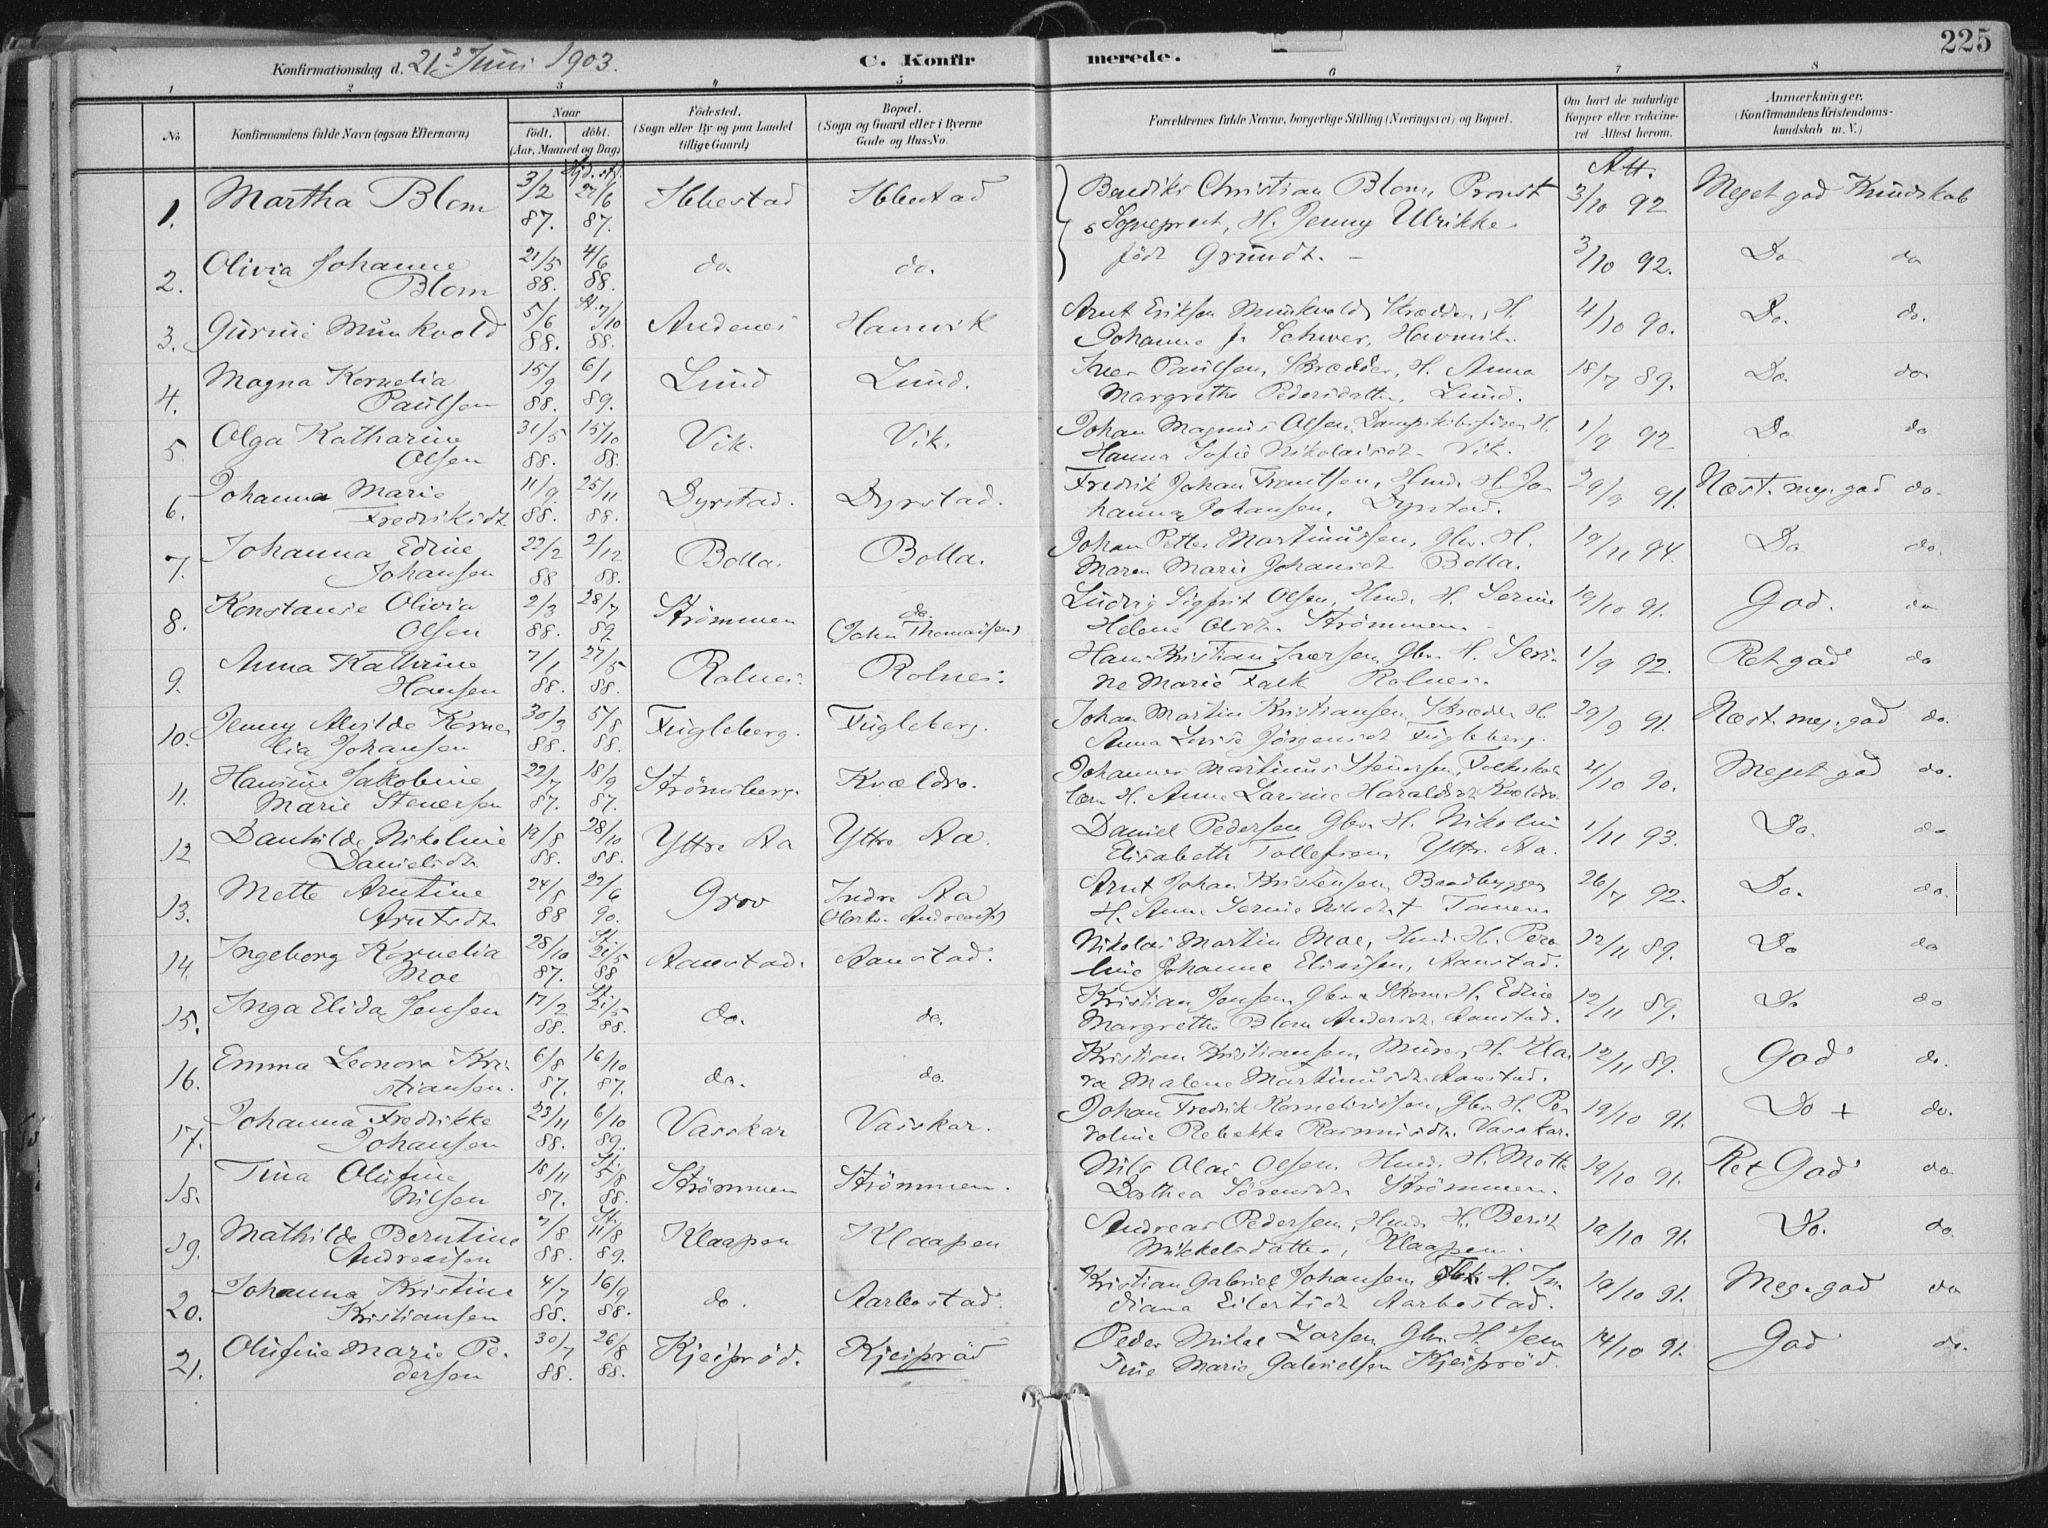 225
Konfirmationsdag d. 21s Juni 1903.
C. Konfirmerede.
1 2 3 4 5 6 7 8
No. Konfirmandens fulde Navn (ogsaa Efternavn) Naar födt. döbt. (Aar, Maaned og Dag) Födested. (Sogn eller By og paa Landet tillige Gaard) Bopæl. (Sogn og Gaard eller i Byerne Gade og Hus-No. Forældrenes fulde Navne, borgerlige Stilling (Næringsvei) og Bopæl. Om havt de naturlige Kopper eller vakcineret Attest herom. Anmærkninger. (Konfirmandens Kristendomskundskab m. V.)
1. Martha Blom 3/2 87. 27/6 87. Ibbestad Ibbestad Bendiks Christian Blom, Provst & Sogneprest, H. Jenny Ulrikke född Grundt. Att. 3/10 92 Meget god Kundskab
2. Olivia Johanne Blom 21/5 88. 4/6 88. do. do. 3/10 92. Do do
3. Gurine Munkvold 5/6 88. St. 7/10 88. Andenes Hamvik Arnt Eriksen Munkvold, Skrædder, H. Johanne f. Schwer, Havnvik 4/10 90. Do. do.
4. Magna Kornelia Paulsen 15/9 88. 6/1 89. Lund Lund. Iver Paulsen, Skrædder, H. Anna Margrethe Pedersdatter, Lund. 18/7 89. Do. do
5. Olga Katharine Olsen 31/5 88. 15/10 88. Vik. Vik. Johan Magnus Olsen, H. Hanna Sofie Nikolaisdt. Vik. 1/9 92 Do do
6. Johanna Marie Fredriksdt 11/9 88. 25/11 88. Dyrstad. Dyrstad. Fredrik Johan Frantsen, Hmd. H. Johanna Johansen, Dyrstad. 29/9 91. Næst. meg. god do.
7. Johanna Edine Johansen 22/2 88 2/12 88. Bolla. Bolla. Johan Petter Martinussen, Gbr. H. Maren Marie Johansdt Bolla. 19/11 94. Do do.
8. Konstanse Olivia Olsen 2/3 88. 28/7 89. Strömmen do (John Thomassen) Ludvig Sigfrit Olsen, Hmd. H. Serine Helene Olsdt. Strömmen 19/10 91. God. do
9. Anna Kathrine Hansen 7/1 88. 27/5 88. Rolnes. Rolnes. Hans Kristian Iversen, Gbr. H. Serine Marie Falk Rolnes. 1/9 92. Ret god do
10. Jenny Alvilde Kornelia Johansen 30/3 88. 5/8 88. Fugleberg. Fugleberg. Johan Martin Kristiansen, Skrædr. H. Anna Lovise Jörgensdt Fugleberg. 29/9 91. Næst. meg. god do.
11. Hansine Jakobine Marie Stenersen 22/7 87. 18/9 87. Strömsberg. Kvældro. Johannes Martinus Stenersen, Folkeskolelærer H. Anne Larsine Haraldsdt Kvældro. 4/10 90. Meget god do.
12 Danhilde Nikoline Danielsdt. 19/8 88. 28/10 88. Yttre Aa Yttre Aa. Daniel Pedersen Gbr. H. Nikoline Elisabeth Tollefsen, Yttr. Aa. 1/11 93. Do. do
13. Mette Arntine Arntsdt. 24/8 88 22/6 90. Grov Indre Aa (Hartv. Andreassen) Arnt Johan Kristensen, Baadbygger H. Anne Serine Nilsdt 26/7 92. Do. do.
14. Ingeborg Kornelia Moe 28/10 87. St. 21/5 88 Aanstad. Aanstad. Nikolai Martin Moe, Hmd. H. Peroline Johanne Eliassen, Aanstad. 12/11 89. Do do
15. Inga Elida Jensen 17/2 88. St. 21/5 88. do. do. Kristian Jensen, Gbr. & Skom. H. Edine Margrethe Blom Andersdt. Aanstad. 12/11 89. Do do
16. Emma Leonora Kristiansen. 6/8 87. 16/10 87. do. do. Kristian Kristiansen, Murer, H. Klara Malene Martinusdt. Aanstad. 12/11 89. God do.
17. Johanna Fredrikke Johansen 23/11 88. 6/10 89. Vasskar Vasskar. Johan Fredrik Korneliussen, Gbr. H. Peroline Rebekka Rasmusdt. Vasskar. 19/10 91. Do + do.
18. Tina Olufine Nilsen 18/11 87. St. 5/8 88. Strömmen Strömmen. Nils Olai Olsen, Hmd. H. Mette Dorthea Sörensdt Strömmen. 19/10 91. Ret God do
19. Mathilde Berntine Andreassen 7/8 88. St. 11/8 89. Klaapen Klaapen Andreas Pedersen, Hmd. H. Berit Mikkelsdatter, Klaapen. 19/10 91. Do. do.
20. Johanna Kristine Kristiansen 4/7 88. 16/9 88. do. Aarbostad. Kristian Gabriel Johansen, H. Indiana Eilertsdt Aarbostad. 19/10 91. Meg. god do
21. Olufine Marie Pedersen 30/7 88. 26/8 88. Kjeipröd. Kjeipröd Peder Mikal Larsen Gbr. H. Jentine Marie Gabrielsen Kjeipröd. 14/10 91. God do.